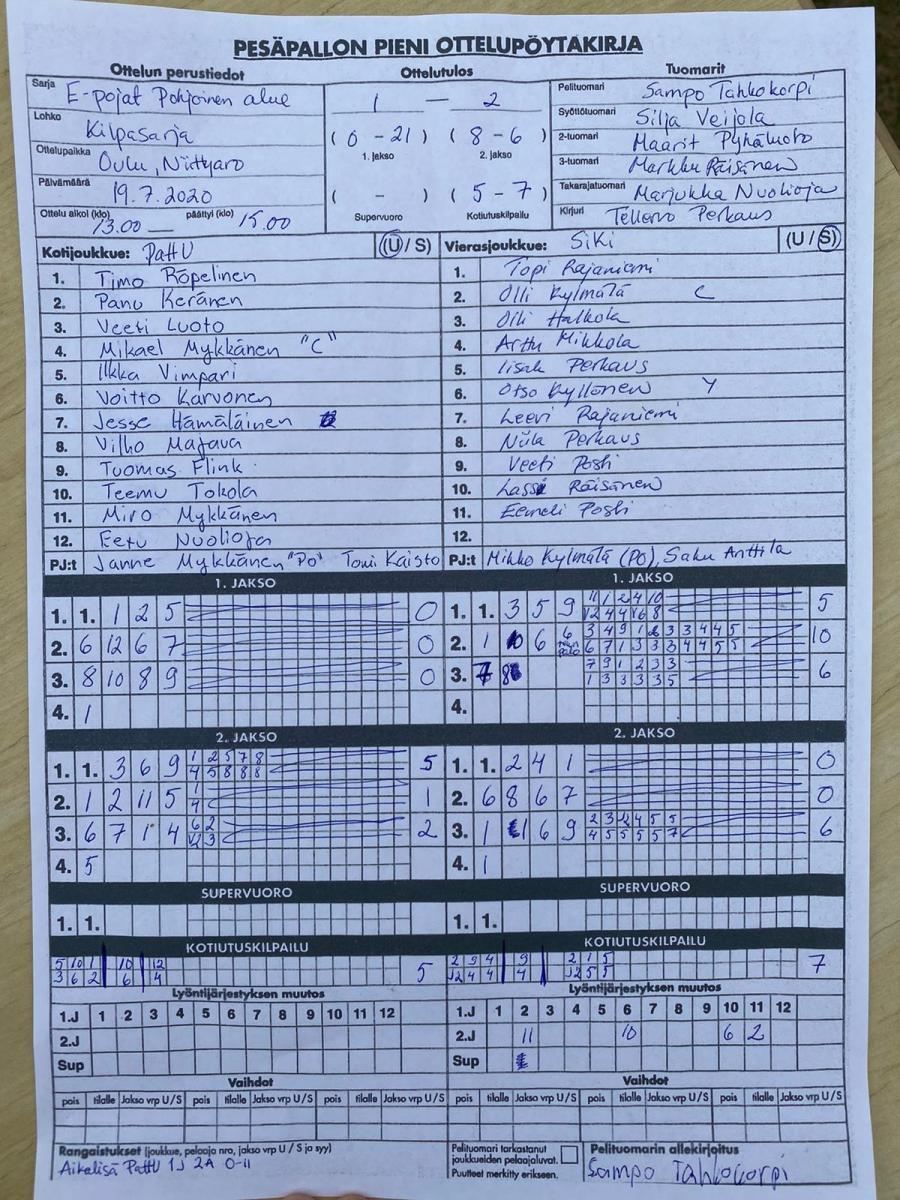 PESÄPALLON PIENI OTTELUPÖYTÄKIRJA
Ottelun perustiedot Ottelutulos Tuomarit
Sarja E-pojat Pohjoinen alue
Lohko Kilpasarja
Ottelupaikka Oulu, Niittyaro
Päivämäärä 19.7.2020
Ottelu alkoi (klo) 13.00 päättyi (klo) 15.00
1 — 2
(0 - 21) (8 - 6)
1. jakso 2. jakso
( - ) (5 - 7)
Supervuoro Kotiutuskilpailu
Pelituomari Sampo Tahkokorpi
Syöttötuomari Silja Veijola
2-tuomari Maarit Pyhäluoto
3-tuomari Markku Räisänen
Takarajatuomari Marjukka Nuolioja
Kirjuri Tellervo Perkaus
Kotijoukkue: PattU (U / S) Vierasjoukkue: SiKi (U / S)
1. Timo Röpelinen 1. Topi Rajaniemi
2. Panu Keränen 2. Olli Kylmälä C
3. Veeti Luoto 3. Olli Halkola
4. Mikael Mykkänen "C" 4. Arttu Mikkola
5. Ilkka Vimpari 5. Iisak Perkaus
6. Voitto Karvonen 6. Otso Kyllönen Y
7. Jesse Hämäläinen 7. Leevi Rajaniemi
8. Vilho Majava 8. Niila Perkaus
9. Tuomas Flink 9. Veeti Poshi
10. Teemu Tokola 10. Lassi Räisänen
11. Miro Mykkänen 11. Eemeli Poshi
12. Eetu Nuolioja 12.
PJ:t Janne Mykkänen "PO" Toni Kaisto PJ:t Mikko Kylmälä (PO), Saku Anttila
1. JAKSO 1. JAKSO
1. 1. 1 2 5 0 1. 1. 3 5 9 5
2. 6 12 6 7 0 2. 1 6 6 10
3. 8 10 8 9 0 3. 7 8 6
4. 1 4.
2. JAKSO 2. JAKSO
1. 1. 3 6 9 1 2 5 7 8 5 1. 1. 2 4 1 0
4 5 8 8 8
2. 1 2 11 5 1 1 2. 6 8 6 7 0
4
3. 6 7 1 4 6 2 2 3. 1 1 6 9 2 3 2 4 5 5 6
12 3 4 5 5 5 5 7
4. 5 4. 1
SUPERVUORO SUPERVUORO
1. 1. 1. 1.
KOTIUTUSKILPAILU KOTIUTUSKILPAILU
5 10 1 10 12 5 2 9 4 9 2 1 5 7
3 6 2 6 4 12 4 4 4 12 5 5
Lyöntijärjestyksen muutos Lyöntijärjestyksen muutos
1.J 1 2 3 4 5 6 7 8 9 10 11 12 1.J 1 2 3 4 5 6 7 8 9 10 11 12
2.J 2.J 11 10 6 2
Sup Sup
Vaihdot Vaihdot
pois tilalle Jakso vrp U/S pois tilalle Jakso vrp U/S pois tilalle Jakso vrp U/S pois tilalle Jakso vrp U/S pois tilalle Jakso vrp U/S pois tilalle Jakso vrp U/S
Rangaistukset (joukkue, pelaaja nro, jakso vrp U / S ja syy)
Aikalisä PattU 1J 2A 0-11
Pelituomari tarkastanut
joukkueiden pelaajaluvat.
Puutteet merkitty erikseen.
Pelituomarin allekirjoitus
Sampo Tahkokorpi